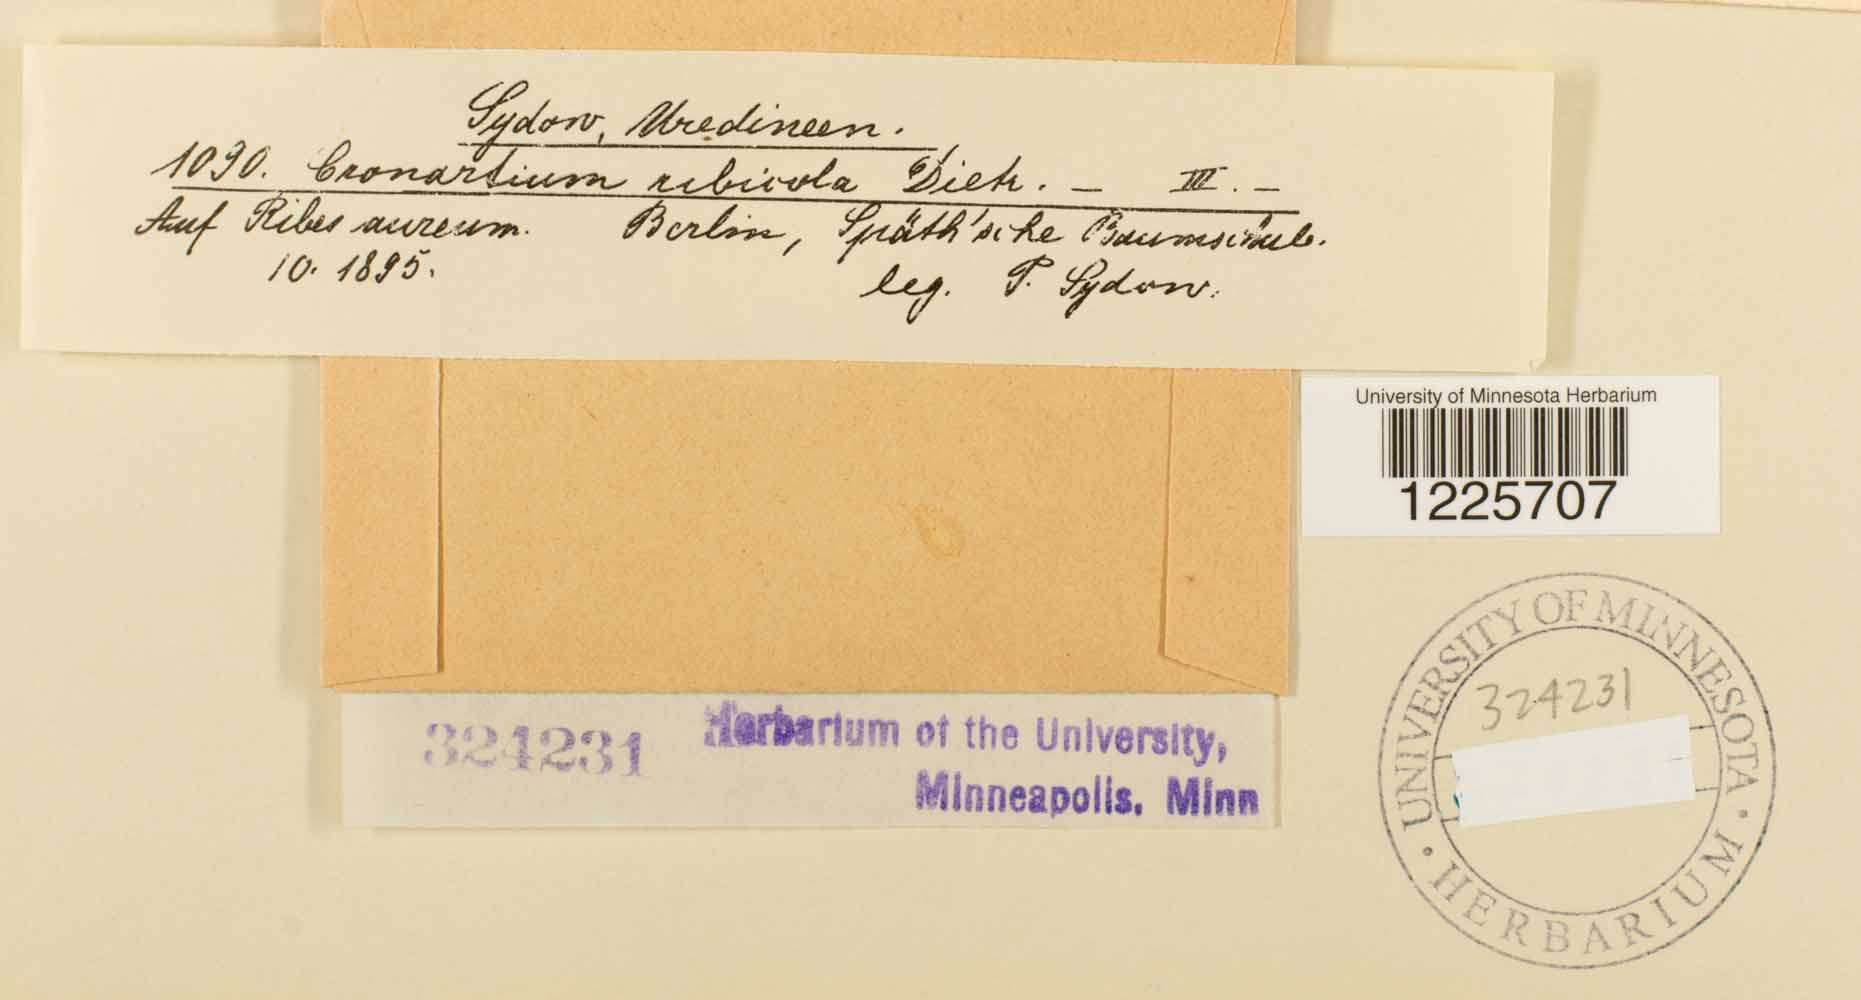 Sydow, Uredineen.
1090. Cronartium ribicola Dietr. — III. —
Auf Ribes aureum. Berlin, Späth'sche Baumschule.
10. 1895.
leg. P. Sydow.
University of Minnesota Herbarium
1225707
UNIVERSITY OF MINNESOTA
324231
· HERBARIUM ·
324231
Herbarium of the University,
Minneapolis. Minn